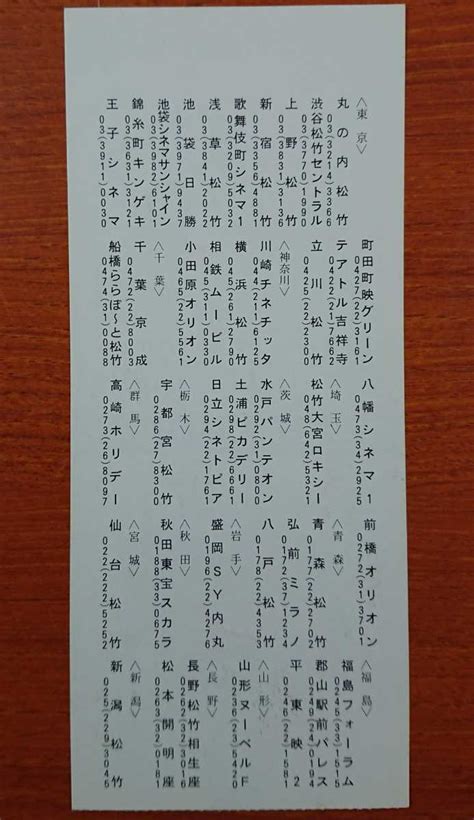 <東京>
丸の内松竹
03(3214)3366
渋谷松竹セントラル
上野松竹
03(3831)1990
新宿松竹
03(3356)4881
歌舞伎町シネマ1
03(3209)5032
浅草松竹
03(3841)2022
池袋日勝
03(3971)9437
池袋シネマサンシャイン
03(3982)6101
錦糸町キンゲキ
03(3631)3121
王子シネマ
03(3911)0030
町田町映グリーン
0427(22)3161
テアトル吉祥寺
0422(21)7662
立川松竹
0425(22)2300
<神奈川>
川崎チネチッタ
044(211)6125
横浜松竹
045(261)2790
相鉄ムービル
045(311)0330
小田原オリオン
0465(22)5561
<千葉>
千葉京成
0472(22)8003
船橋ららぽーと松竹
0474(31)0088
八幡シネマ1
0473(34)2925
<埼玉>
松竹大宮ロキシー
<茨城>
水戸パンテオン
0292(31)0800
土浦ピカデリー
日立シネトピア
0294(22)1761
<栃木>
宇都宮松竹
0286(27)8300
<群馬>
高崎ホリデー
0273(26)8097
前橋オリオン
0272(31)3701
<青森>
青森松竹
0177(22)2702
弘前ミラノ
八戸松竹
0178(22)4353
<岩手>
盛岡SY内丸
0196(22)4276
<秋田>
秋田東宝スカラ
0188(33)0675
<宮城>
仙台松竹
022(222)5252
<福島>
福島フォーラム
0245(33)1515
郡山駅前パレス
0249(24)0194
平東映2
0246(22)1581
<山形>
山形ヌーベルF
0236(23)5420
<長野>
長野松竹相生座
0262(32)3016
松本開明座
0263(32)0181
<新潟>
新潟松竹
025(229)3045